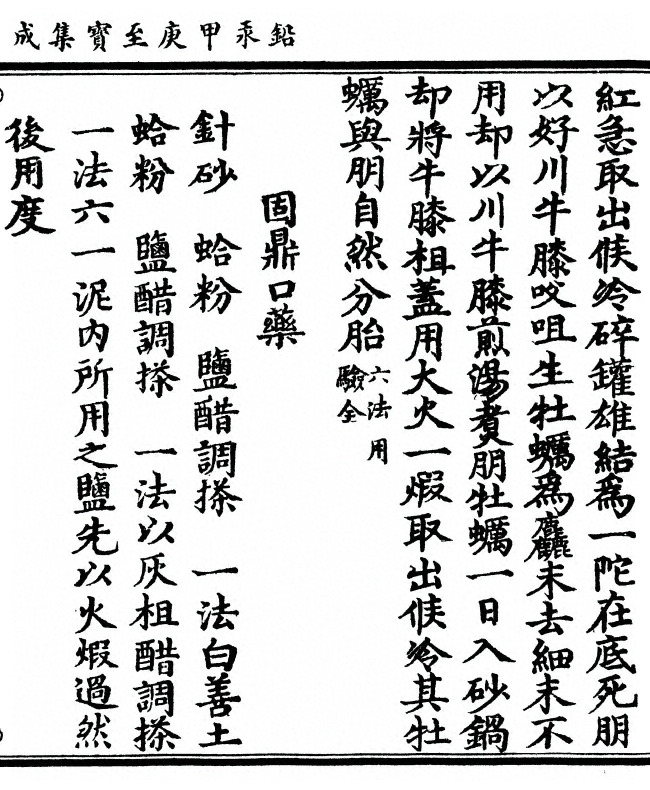 鉛汞甲庚至寶集成
紅急取出候冷碎罐雄結為一陀在底死朋
以好川牛膝㕮咀生牡蠣為麤末去細末不
用却以川牛膝煎湯煮朋牡蠣一日入砂鍋
却將牛膝柤蓋用大火一煆取出候冷其牡
蠣與朋自然分胎六法用驗全
固鼎口藥
針砂 蛤粉 鹽醋調搽 一法白善土
蛤粉 鹽醋調搽 一法以灰柤醋調搽
一法六一泥内所用之鹽先以火煆過然
後用度